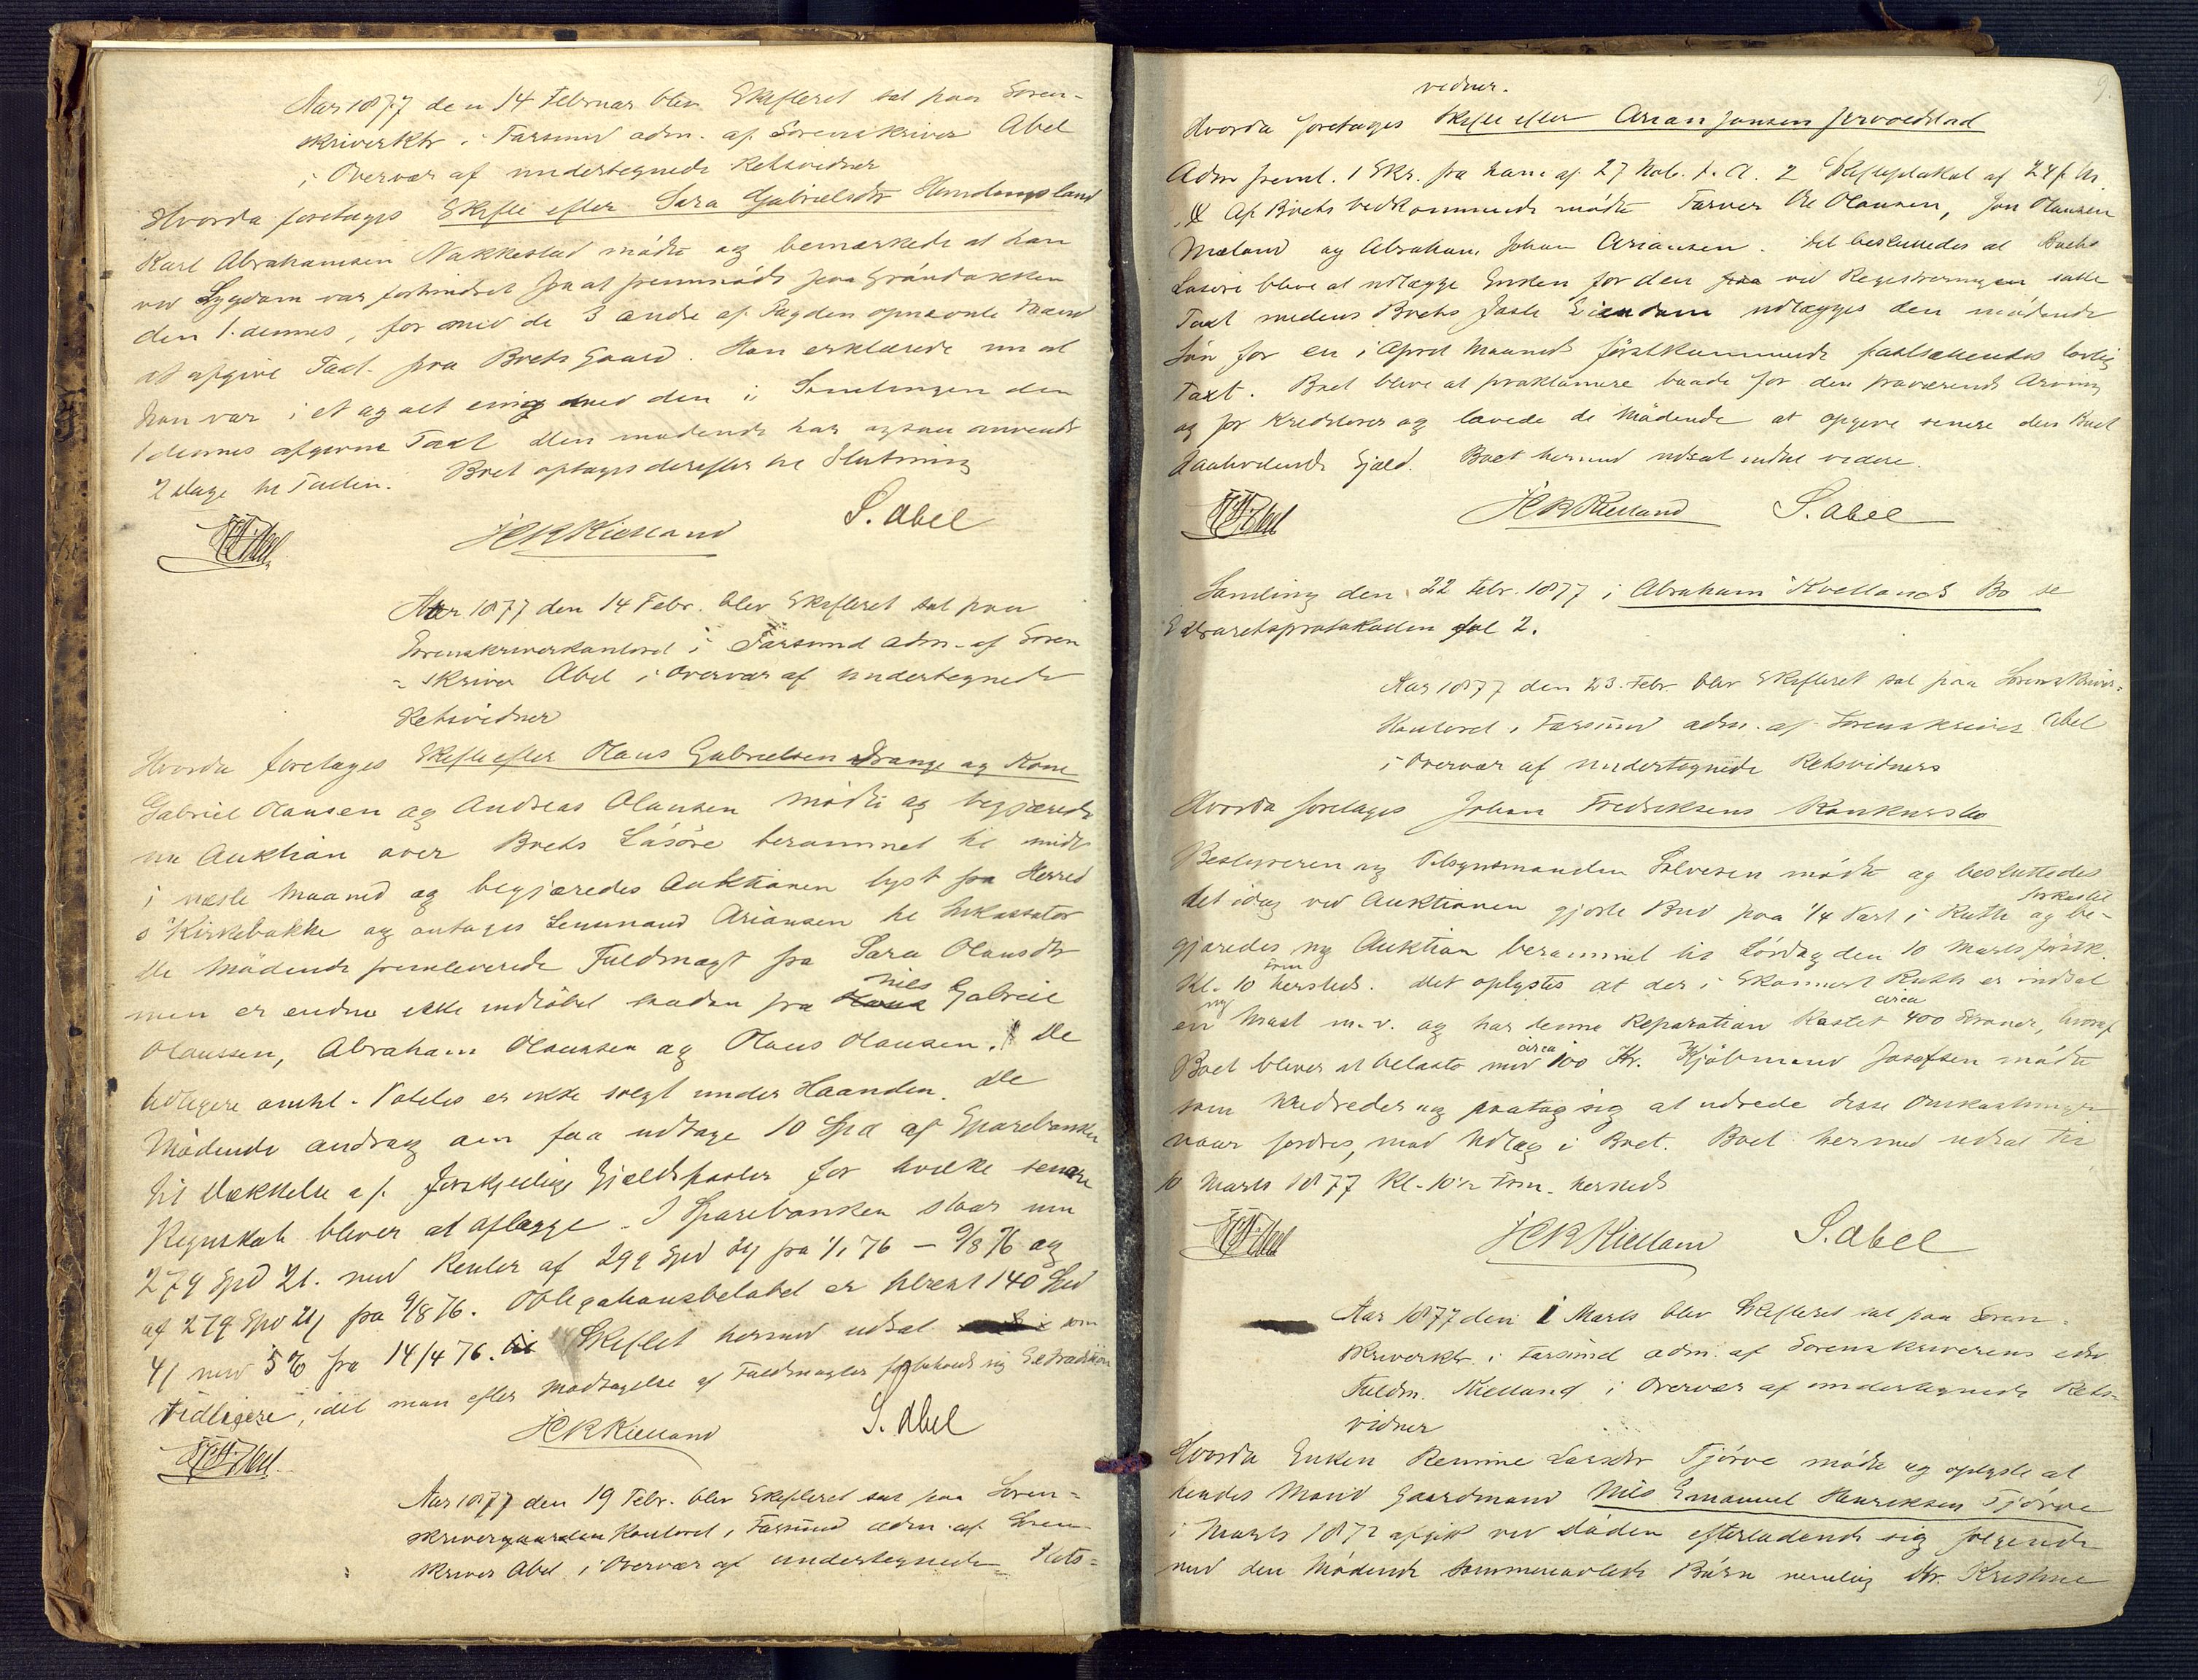 Aar 1877 den 14 Februar blev Skifteret sat paa Soren-
skriverktr i Farsund adm. af Sorenskriver Abel
i Overvær af undertegnede Retsvidner
Hvorda foretages Skifte efter Sara Gabrielsdtr Hundingsland
Karl Abrahamsen Nakkestad mødte og bemærkede at han
ved Sygdom var forhindret fra at fremmøde paa Grandaasken
den 1. dennes, for med de 3 andre af Fogden opnævnte Mænd
at afgive Taxt paa Boets Gaard. Han erklærede nu at
han var i et og alt enig med den i Samlingen den
1 dennes afgivne Taxt. Den mødende har ogsaa anvendt
2 Dage til Turen. Boet optages derefter til Slutning
HCR Kielland S. Abel
Aar 1877 den 14 Febr. blev Skifteret sat paa
Sorenskriverkontoret i Farsund adm. af Soren
-skriver Abel i Overvær af undertegnede
Retsvidner
Hvorda foretages Skifte efter Olaus Gabrielsen Drange og Kone
Gabriel Olausen og Andreas Olausen mødte og begjærede
nu Auktion over Boets Løsøre berammet til midt
i næste Maaned og begjæredes Auktionen lyst fra Herred
s Kirkebakke og antages Lensmand Ariansen til Inkassator
De Mødende fremleverede Fuldmagt fra Sara Olausdtr
men er endnu ikke indløbet saadan fra Nils Gabriel
Olaussen, Abraham Olaussen og Olaus Olausen. De
tidligere omhl. Poteles er ikke solgt under Haanden. De
Mødende androg om faa udtage 10 Spd af Sparebanken
til Dækkelse af forskjellige Gjældsposter for hvilke senere
Regnskab bliver at aflægge. I Sparebanken staar nu
279 Spd 21. med Renter af 299 Spd 21 fra 1/1 76 – 9/8 76 og
af 279 Spd 21 fra 9/8 76. Obligationsbeløbet er tilkent 140 Spd
41 med 5% fra 14/4 76. Skiftet hermed udsat som
tidligere, idet man efter Modtagelse af Fuldmagter forbeholdt sig Extradition
HCR Kielland S. Abel
Aar 1877 den 19 Febr. blev Skifteret sat paa Soren-
skrivergaarden Kontoret i Farsund adm. af Soren-
skriver Abel i Overvær af undertegnede Rets-
9.
vidner.
Hvorda foretages Skifte efter Arian Jansen Jervoldstad
Adm freml. 1 Skr. fra ham af 27 Nob. f. A. 2 Skifteplakat af 24 f. M.
Af Boets Vedkommende mødte Farver Ole Olausen, Jon Olausen
Mæland og Abraham Johan Ariansen. Det besluttedes at Boets
Løsøre bliver at udlægge Enken for den ved Registreringen satte
Taxt medens Boets faste Eiendom udlægges den mødende
Søn for en i April Maaned førstkommende paatænkendes lovlig
Taxt. Boet bliver at proklamere baade for den fraværende Arving
og for Kreditorer og lovede de Mødende at opgive senere den Boet
paahvilende Gjæld. Boet hermed udsat indtil videre.
HCR Kielland S. Abel
Samling den 22 Febr. 1877 i Abraham Kvellands Bo se
Extraretsprotokollen fol 2.
Aar 1877 den 23. Febr. blev Skifteret sat paa Sorenskriver-
Kontoret i Farsund adm. af Sorenskriver Abel
i Overvær af undertegnede Retsvidner
Hvorda foretages Johan Fredriksens Konkursbo
Bestyreren og Tilsynsmanden Salvesen mødte og besluttedes
det idag ved Auktionen gjorte Bud paa 1/4 Part i Ruth forkastet og be-
gjæredes ny Auktion berammet til Lørdag den 10 Marts førstk.
Kl. 10 Frm hersteds. Det oplystes at der i Skonnert Ruth er indsat
en ny Mast m.v. og har denne Reparation kostet circa 400 Kroner, hvoraf
Boet bliver at belaste med circa 100 Kr. Kjøbmand Josefsen mødte
som Kreditor og paatog sig at udrede disse Omkostninger
naar fordres, mod Udlæg i Boet. Boet hermed udsat til
10 Marts 1877 Kl. 10 1/2 Frm. hersteds
HCR Kielland S. Abel
Aar 1877 den 1 Marts blev Skifteret sat paa Soren-
skriverktr. i Farsund adm. af Sorenskriverens edsv
Fuldm. Kielland i Overvær af undertegnede Rets-
vidner
Hvorda Enken Remine Larsdtr Tjørve mødte og oplyste at
hendes Mand Gaardmand Nils Emanuel Henriksen Tjørve
i Marts 1872 afgik ved Døden efterladende sig følgende
med den Mødende sammenavlede Børn nemlig Kr. Kristine